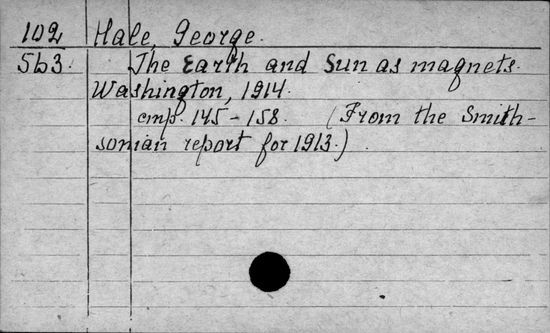 102 Hale, George.
563. The Earth and Sun as magnets.
Washington, 1914.
стр. 145-158. (From the Smith-
sonian report for 1913.)